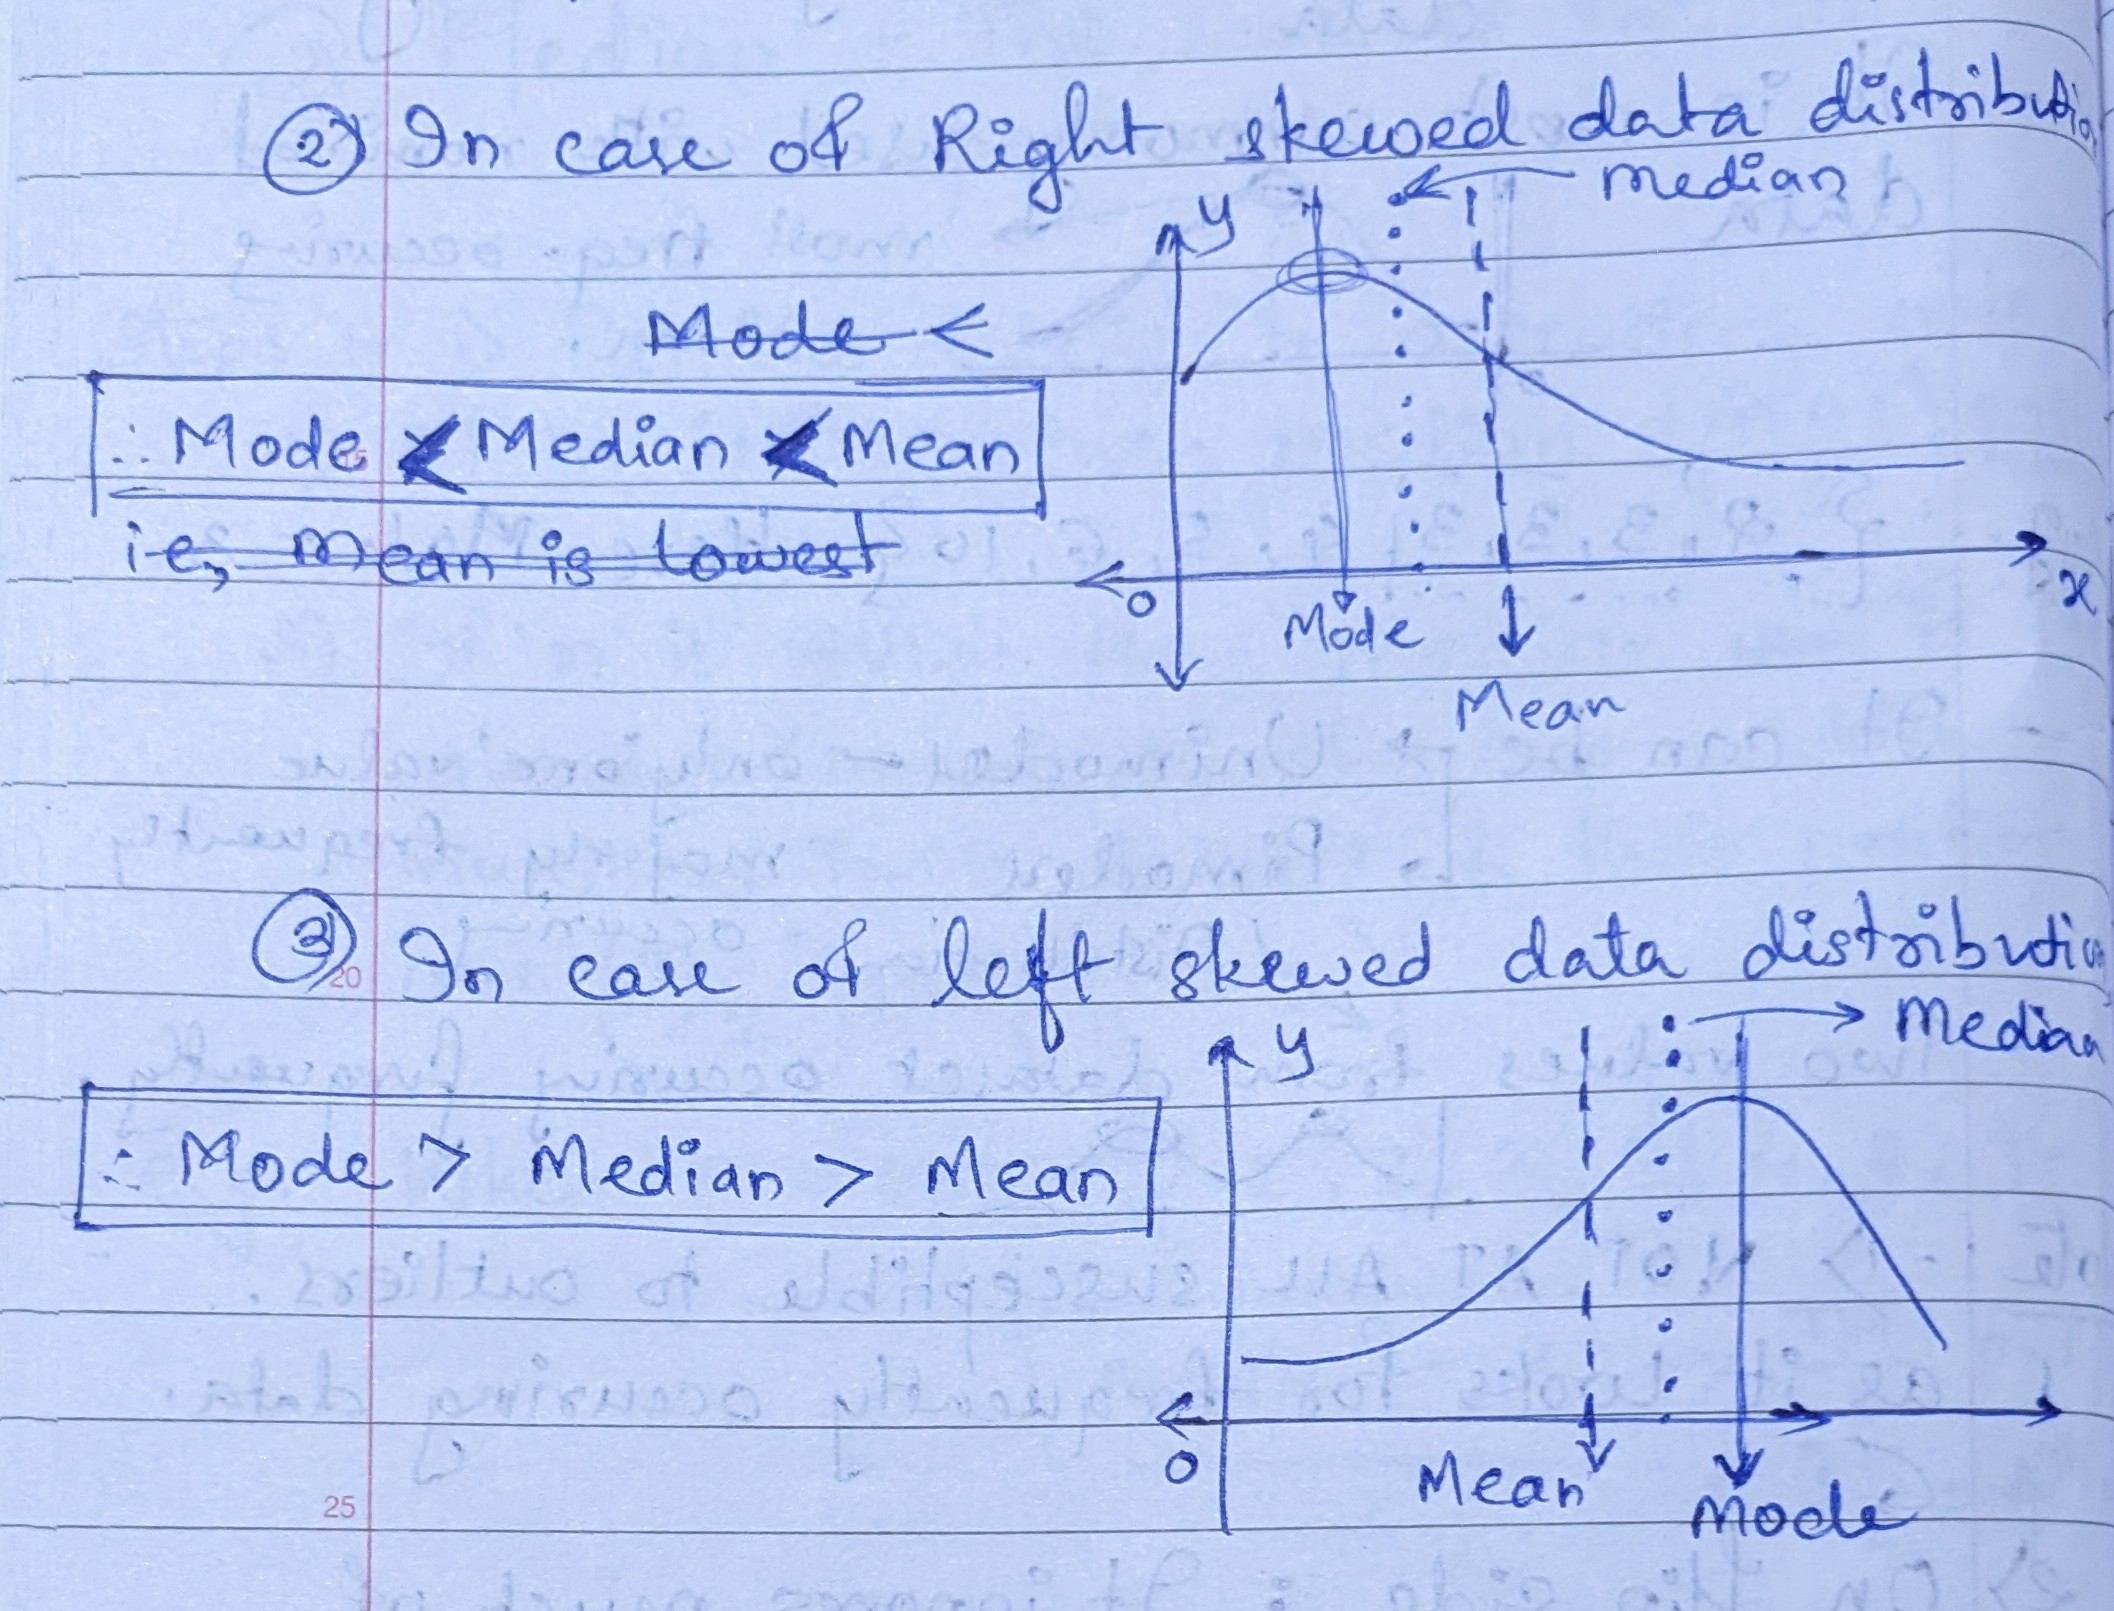 ② In case of Right skewed data distributio
median
y
Mode <
∴ Mode < Median < Mean
i.e, Mean is lowest
0
x
Mode
Mean
③ In case of left skewed data distributio
Median
y
∴ Mode > Median > Mean
0
Mean
Mode
20
25